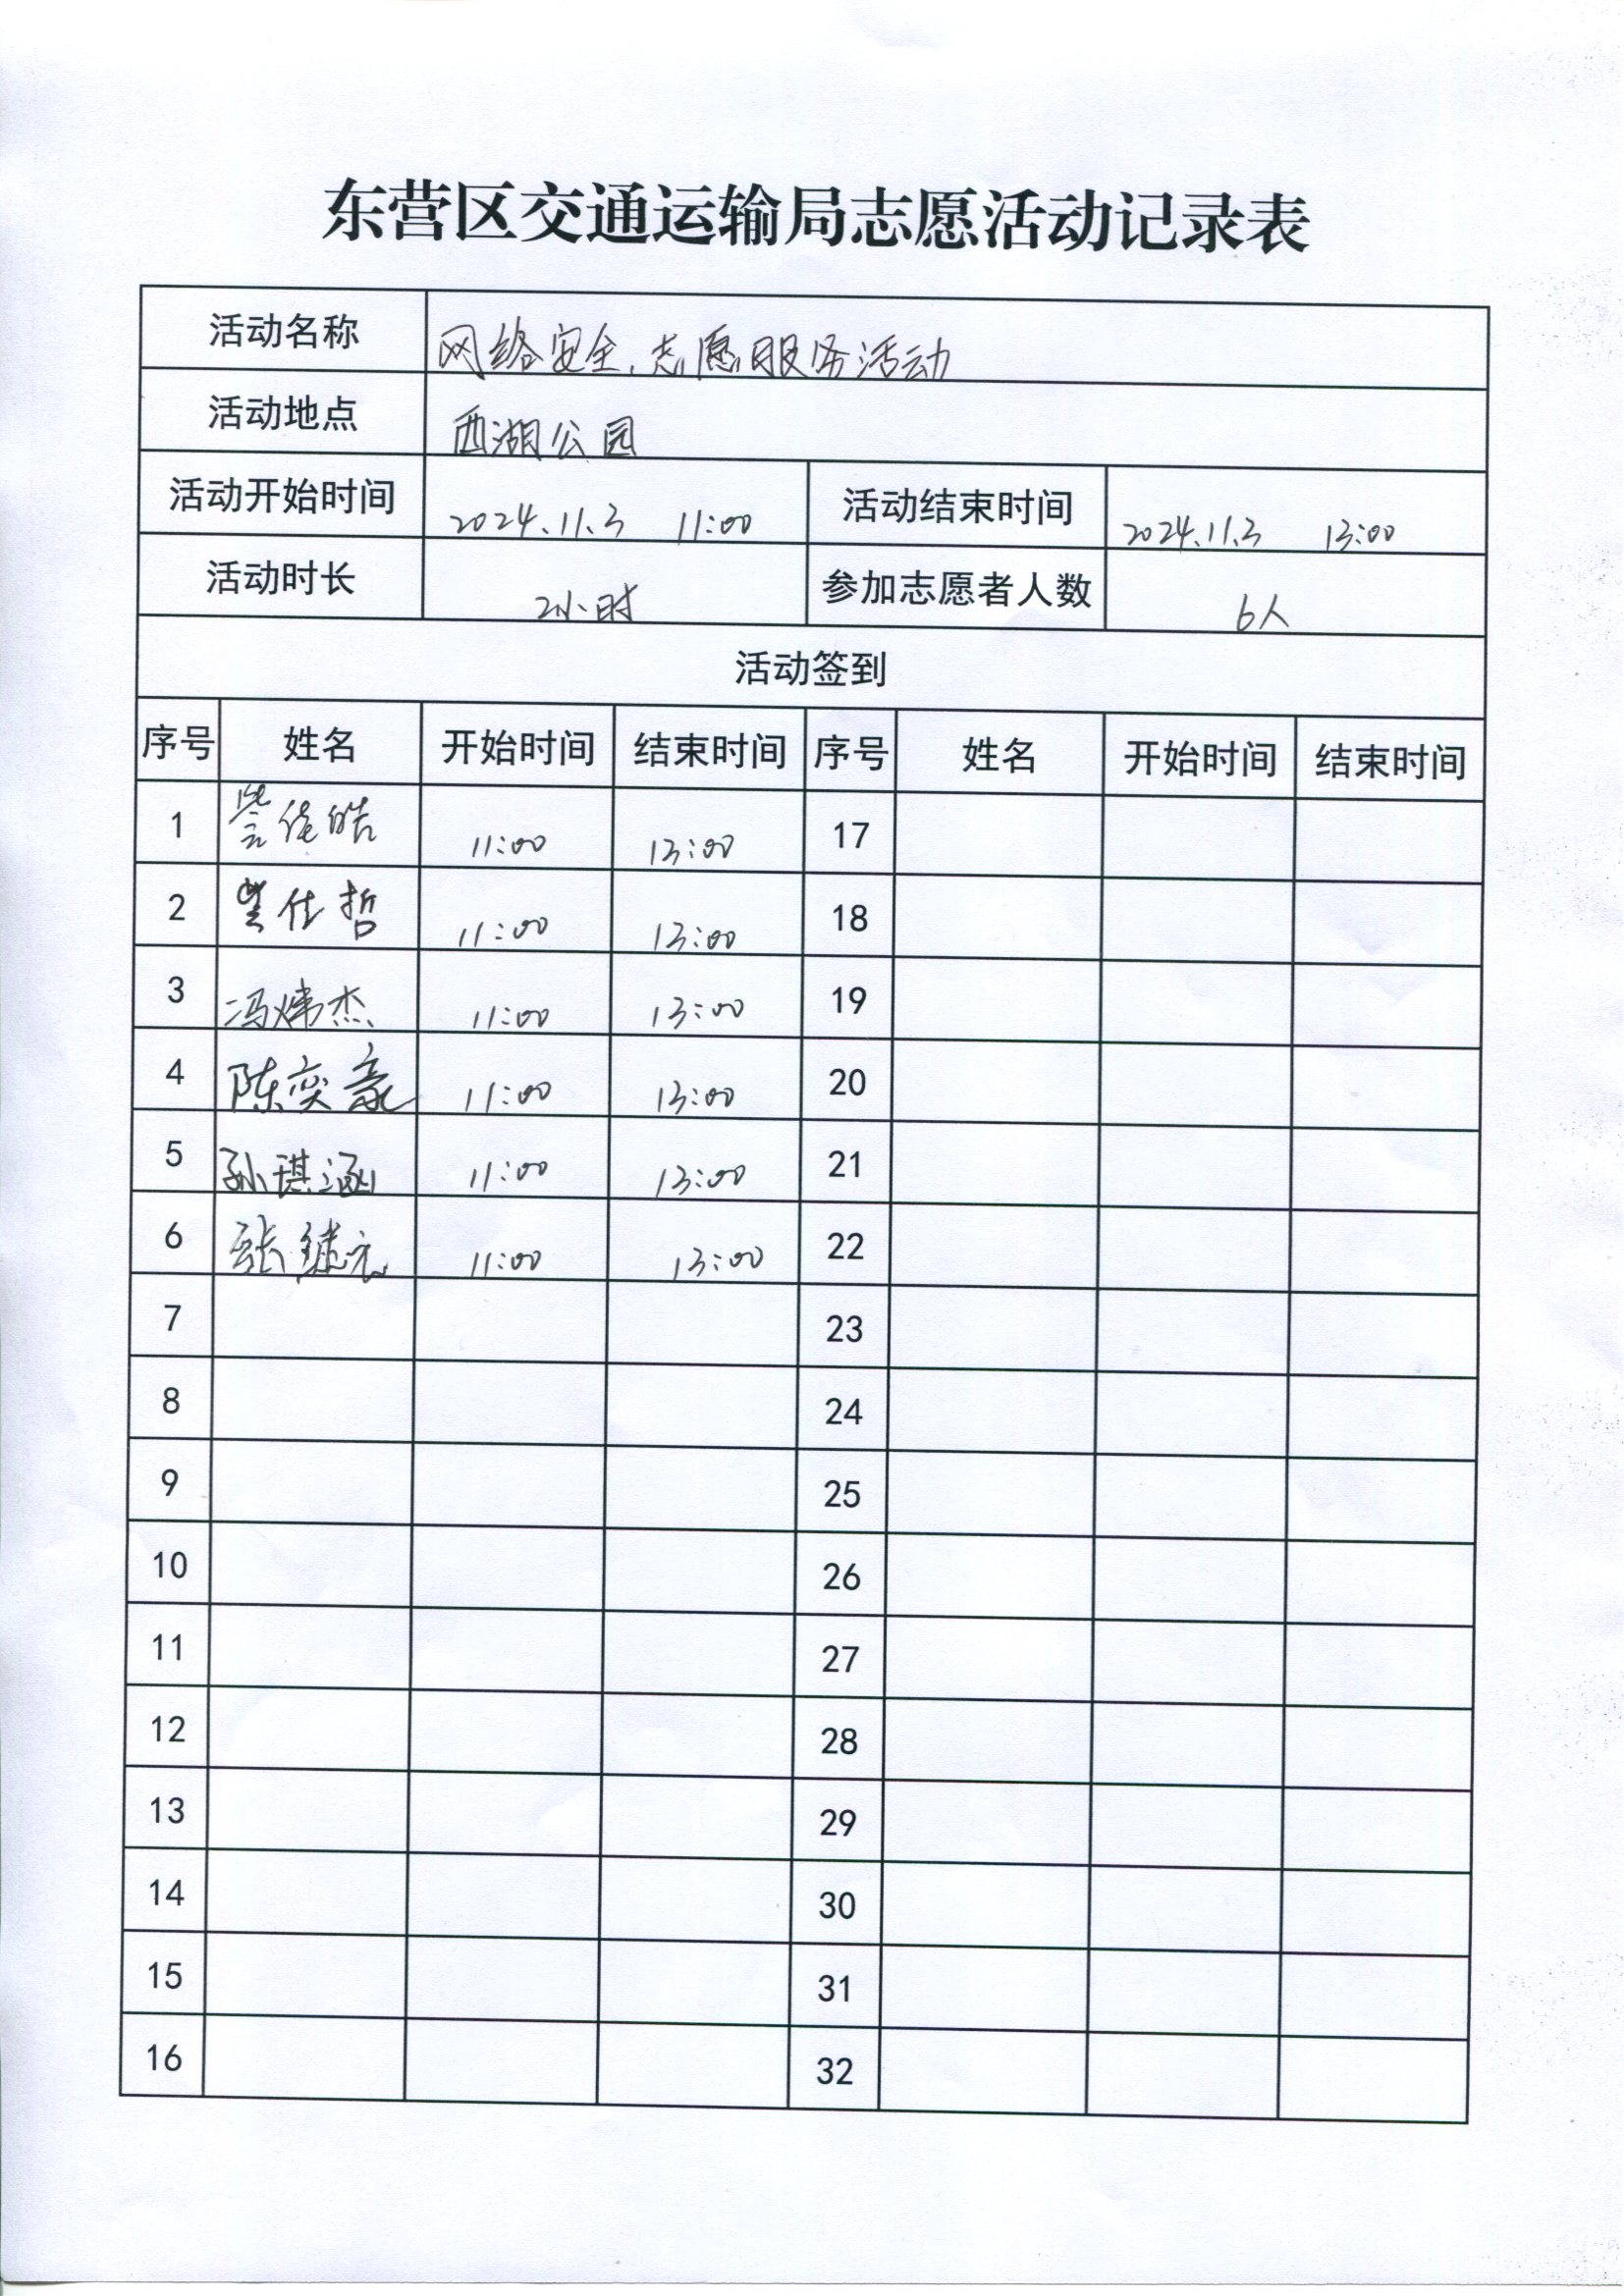 东营区交通运输局志愿活动记录表
活动名称 网络安全,志愿服务活动
活动地点 西湖公园
活动开始时间 2024.11.3 11:00 活动结束时间 2024.11.3 13:00
活动时长 2小时 参加志愿者人数 6人
活动签到
序号 姓名 开始时间 结束时间 序号 姓名 开始时间 结束时间
1 11:00 13:00 17
2 11:00 13:00 18
3 冯炜杰 11:00 13:00 19
4 陈奕豪 11:00 13:00 20
5 孙琪涵 11:00 13:00 21
6 张继元 11:00 13:00 22
7 23
8 24
9 25
10 26
11 27
12 28
13 29
14 30
15 31
16 32